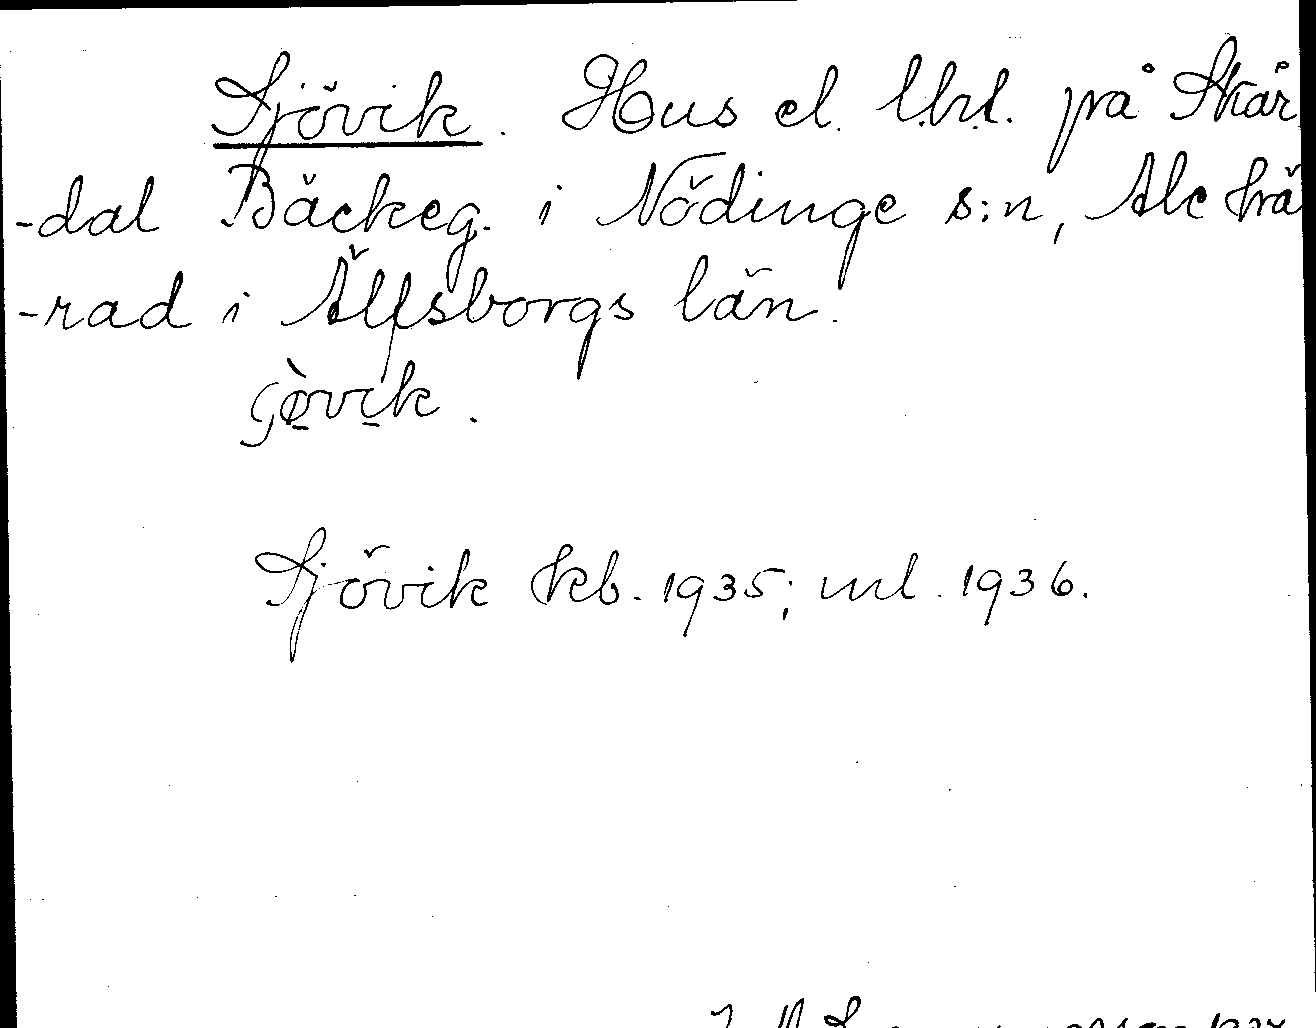 Sjövik. Hus el. l.h.l. på Skår
-dal Bäckeg. i Nödinge s:n, Ale hä
-rad i Älfsborgs län.
Sjövik kb. 1935; ml. 1936.